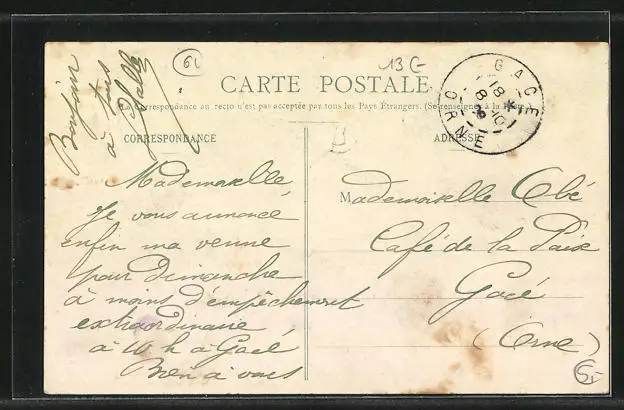 61
13 G
CARTE POSTALE
La Correspondance au recto n'est pas acceptée par tous les Pays Étrangers. (Se renseigner à la Poste.)
CORRESPONDANCE
ADRESSE
GACÉ
18
8 -10
ORNE
Bonjour
à tous
Mademoiselle,
Je vous annonce
enfin ma venue
pour Dimanche
à moins d'empêchement
extraordinaire
à 10 h à Gacé
Bien à vous
Mademoiselle
Café de la Paix
Gacé
(Orne)